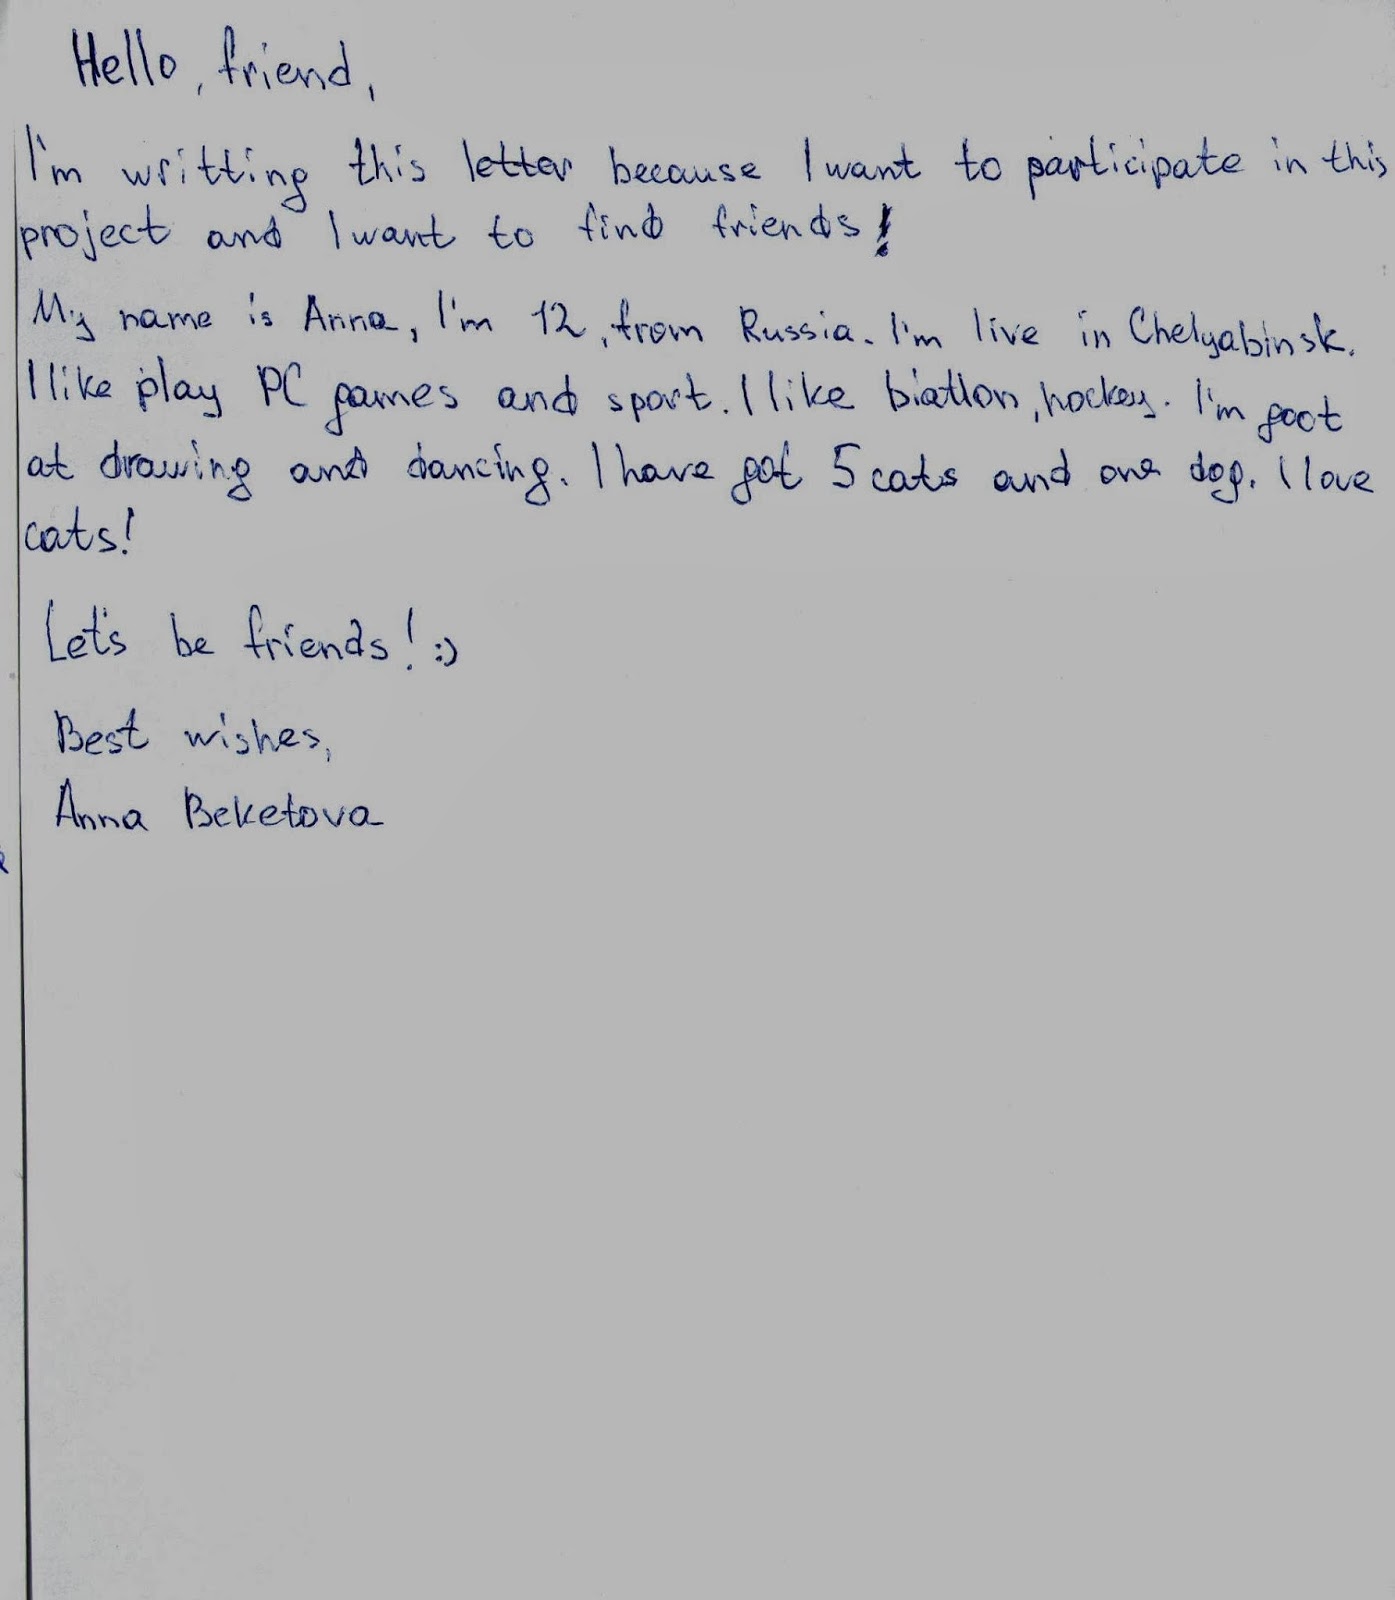 Hello, friend,
I'm writting this letter because I want to participate in this
project and I want to find friends!
My name is Anna, I'm 12, from Russia. I'm live in Chelyabinsk.
I like play PC games and sport. I like biatlon, hockey. I'm goot
at drawing and dancing. I have got 5 cats and one dog. I love
cats!
Let's be friends! :)
Best wishes,
Anna Beketova